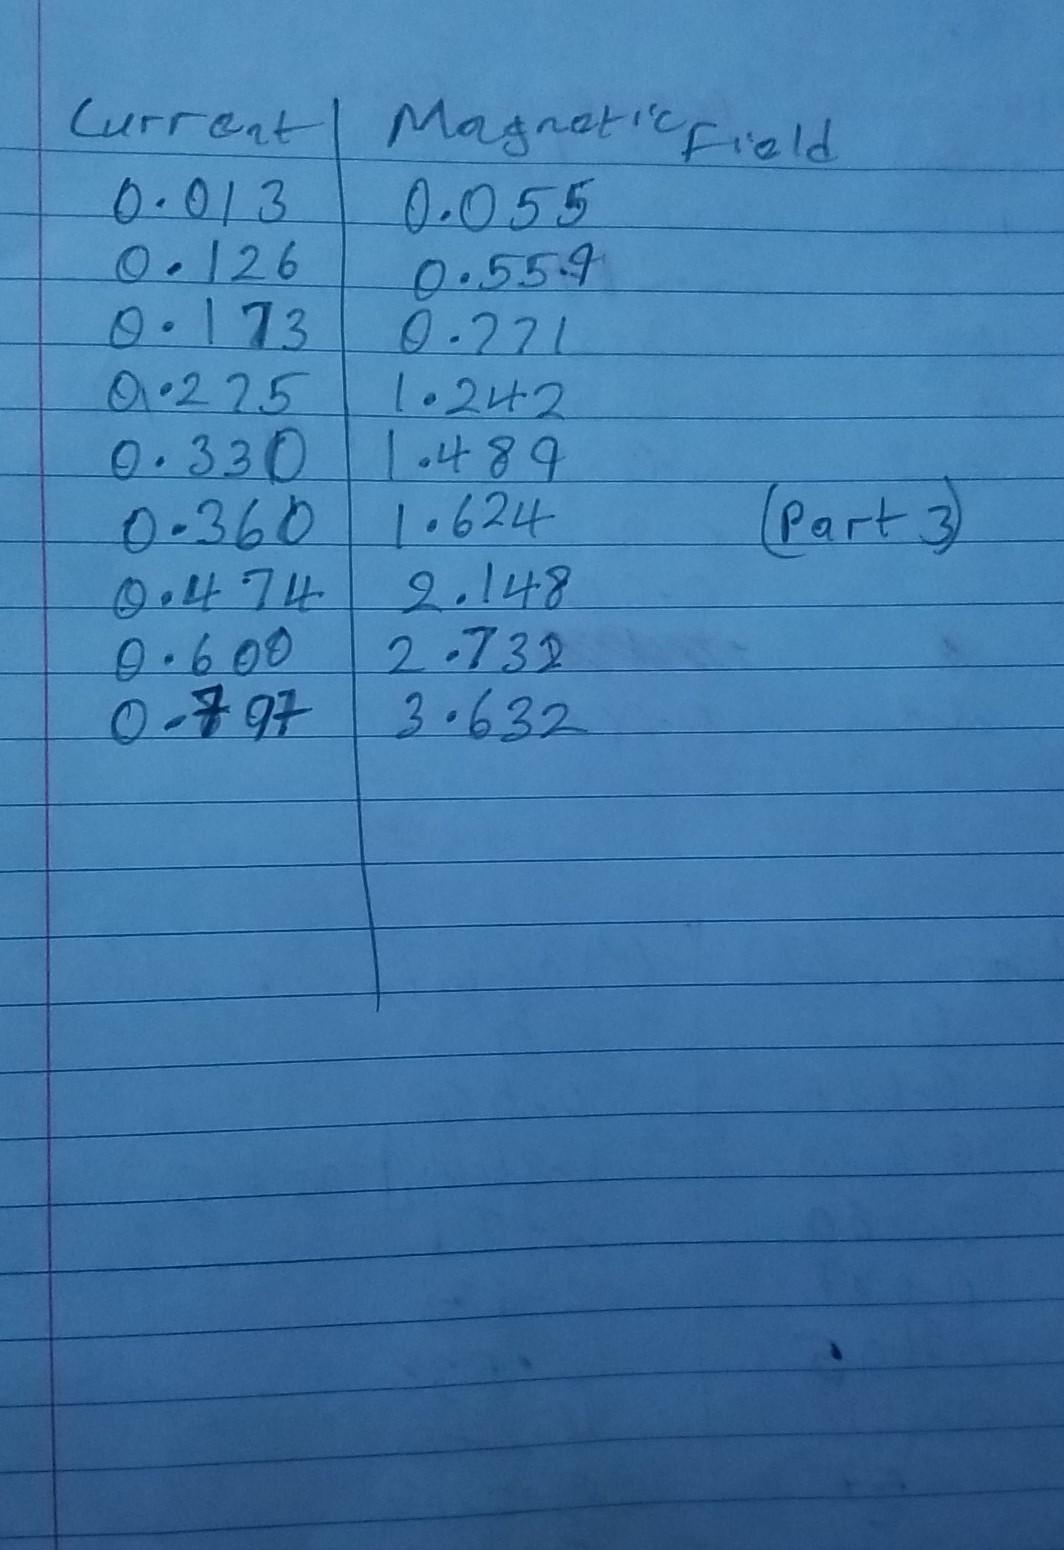 Current | Magnetic Field
0.013 | 0.055
0.126 | 0.559
0.173 | 0.771
0.275 | 1.242
0.330 | 1.489
0.360 | 1.624
(Part 3)
0.474 | 2.148
0.600 | 2.732
0.797 | 3.632